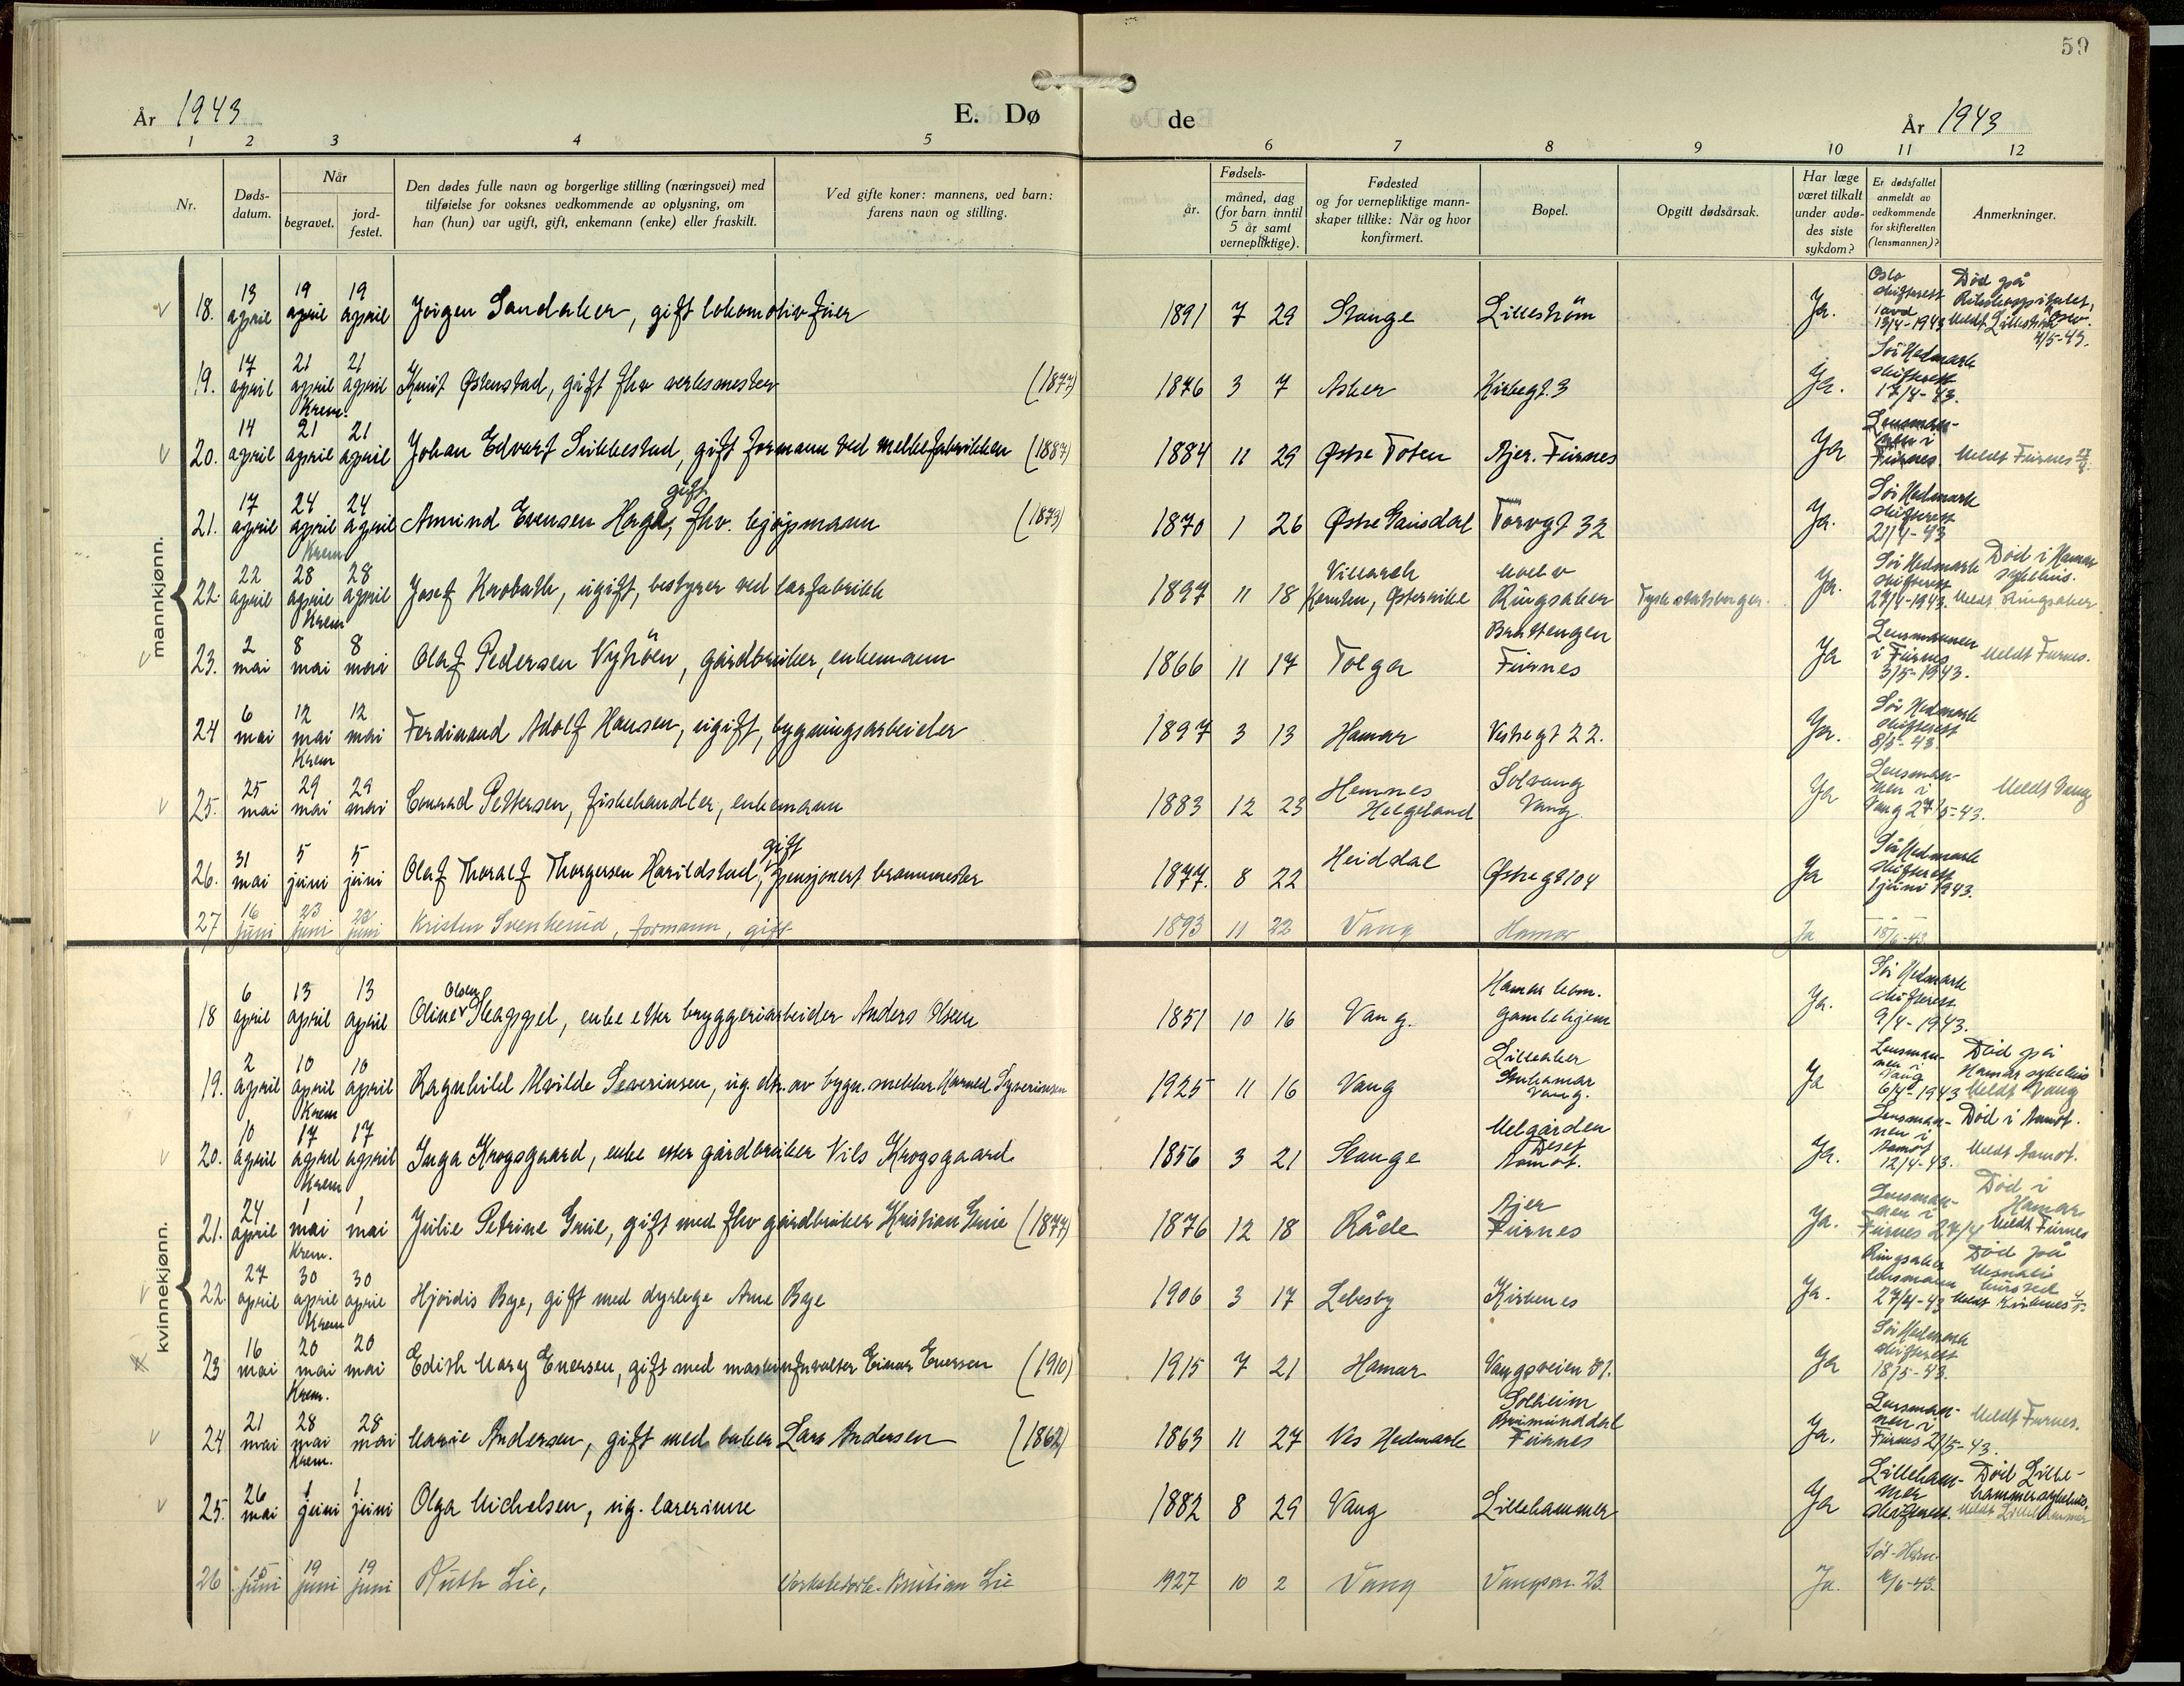 59
År 1943 E. Dø de År 1943
1 2 3 4 5 6 7 8 9 10 11 12
Nr. Døds-datum. Når begravet. jord-festet. Den dødes fulle navn og borgerlige stilling (næringsvei) med tilføielse for voksnes vedkommende av oplysning, om han (hun) var ugift, gift, enkemann (enke) eller fraskilt. Ved gifte koner: mannens, ved barn: farens navn og stilling. Fødsels- år. måned, dag (for barn inntil 5 år samt vernepliktige). Fødested og for vernepliktige mann-skaper tillike: Når og hvor konfirmert. Bopel. Opgitt dødsårsak. Har læge været tilkalt under avdø-des siste sykdom? Er dødsfallet anmeldt av vedkommende for skifteretten (lensmannen)? Anmerkninger.
mannkjønn.
18. 13 april 19 april 19 april Jörgen Sandaker, gift lokomotivfører 1891 7 29 Stange Lilleström Ja. Oslo skifterett 13/4-1943 Död på Rikshospitalet, Oslo. Meldt Lilleström 4/5-43.
19. 17 april 21 april Krem. 21 april Knut Østenstad, gift fhv verksmester (1877) 1876 3 7 Asker Kirkegt. 3 Ja. Sör Hedmark skifterett 17/4-43.
20. 14 april 21 april 21 april Johan Edvart Sukkestad, gift formann ved melkefabrikken (1887) 1884 11 29 Østre Toten Ajer. Furnes Ja Lensmannen i Furnes. Meldt Furnes
21. 17 april 24 april Krem 24 april Amund Evensen Haga, gift, fhv. kjøpmann (1873) 1870 1 26 Østre Gausdal Torvgt 32 Ja. Sör Hedmark skifterett 21/4-43
22. 22 april 28 april Krem 28 april Josef Knobath, ugift, bestyrer ved 1897 11 18 Villach Kärnten, Østerrike Moelv Ringsaker Tysk statsborger. Ja. Sör Hedmark skifterett 27/4-1943. Död i Hamar sykehus. Meldt Ringsaker.
23. 2 mai 8 mai 8 mai Olaf Pedersen Nyhöen, gårdbruker, enkemann 1866 11 17 Tolga Brattengen Furnes Ja Lensmannen i Furnes 3/5-1943. Meldt Furnes.
24 6 mai 12 mai Krem 12 mai Ferdinand Adolf Hansen, ugift, bygningsarbeider 1897 3 13 Hamar Vestregt 22. Ja. Sör Hedmark skifterett 8/5-43.
25. 25 mai 29 mai 29 mai Conrad Pettersen, fiskehandler, enkemann 1883 12 23 Hemnes Helgeland Solvang Vang. Ja Lensmannen i Vang 27/5-43. Meldt Vang
26. 31 mai 5 juni 5 juni Olaf Thoralf Thorgersen Harildstad, gift, pensjonert brannmester 1877. 8 22 Heiddal Østregt 104 Ja Sör Hedmark skifterett 1 juni 1943.
27 16 juni 23 juni 23 juni Kristen Svenkerud, formann, gift 1893 11 22 Vang Hamar Ja 18/6-43.
kvinnekjønn.
18 6 april 13 april 13 april Oline Olsen Skappel, enke efter bryggeriarbeider Anders Olsen 1851 10 16 Vang. Hamar kom. gamlehjem Ja. Sör Hedmark skifterett 9/4-1943.
19. 2 april 10 april Krem 10 april Ragnhild Alvilde Severinsen, ug. dtr. av bygn. snekker Harald Syverinsen 1925 11 16 Vang Lilleaker Storhamar Vang. Ja Lensmannen i Vang 6/4-1943 Död på Hamar sykehus Meldt Vang
20. 10 april 17 april Krem 17 april Inga Krogsgaard, enke etter gårdbruker Nils Krogsgaard 1856 3 21 Stange Melgården Deset Aamot. Ja. Lensmannen i Aamot 12/4-43. Död i Aamot. Meldt Aamot.
21. 24 april 1 mai Krem. 1 mai Julie Petrine Grue, gift med fhv gårdbruker Kristian Grue (1877) 1876 12 18 Råde Ajer Furnes Ja. Lensmannen i Furnes 27/4 Död i Hamar Meldt Furnes
22. 27 april 30 april Krem 30 april Hjördis Bye, gift med dyrlege Arne Bye 1906 3 17 Lebesby Kirkenes Ja. Ringsaker lensmann 27/4-43 Död på Mesnali kursted Meldt Kirkenes
23 16 mai 20 mai Krem. 20 mai Edith Mary Enersen, gift med maskinforvalter Einar Enersen (1910) 1915 7 21 Hamar Vangsveien 71. Ja Sör Hedmark skifterett 18/5-43.
24 21 mai 28 mai Krem. 28 mai Marie Andersen, gift med baker Lars Andersen (1862) 1863 11 27 Nes Hedmark Solheim Brumunddal Furnes Ja. Lensmannen i Furnes 21/5-43. Meldt Furnes.
25. 26 mai 1 juni 1 juni Olga Michelsen, ug. lærerinne 1882 8 29 Vang Lillehammer Ja Lillehammer skifterett. Död Lillehammer sykehus. Meldt Lillehammer
26 15 juni 19 juni 19 juni Ruth Lie, Verkstedarb. Kristian Lie 1927 10 2 Vang Vangsv. 23. Ja. Sör-Hedm. 16/6-43.